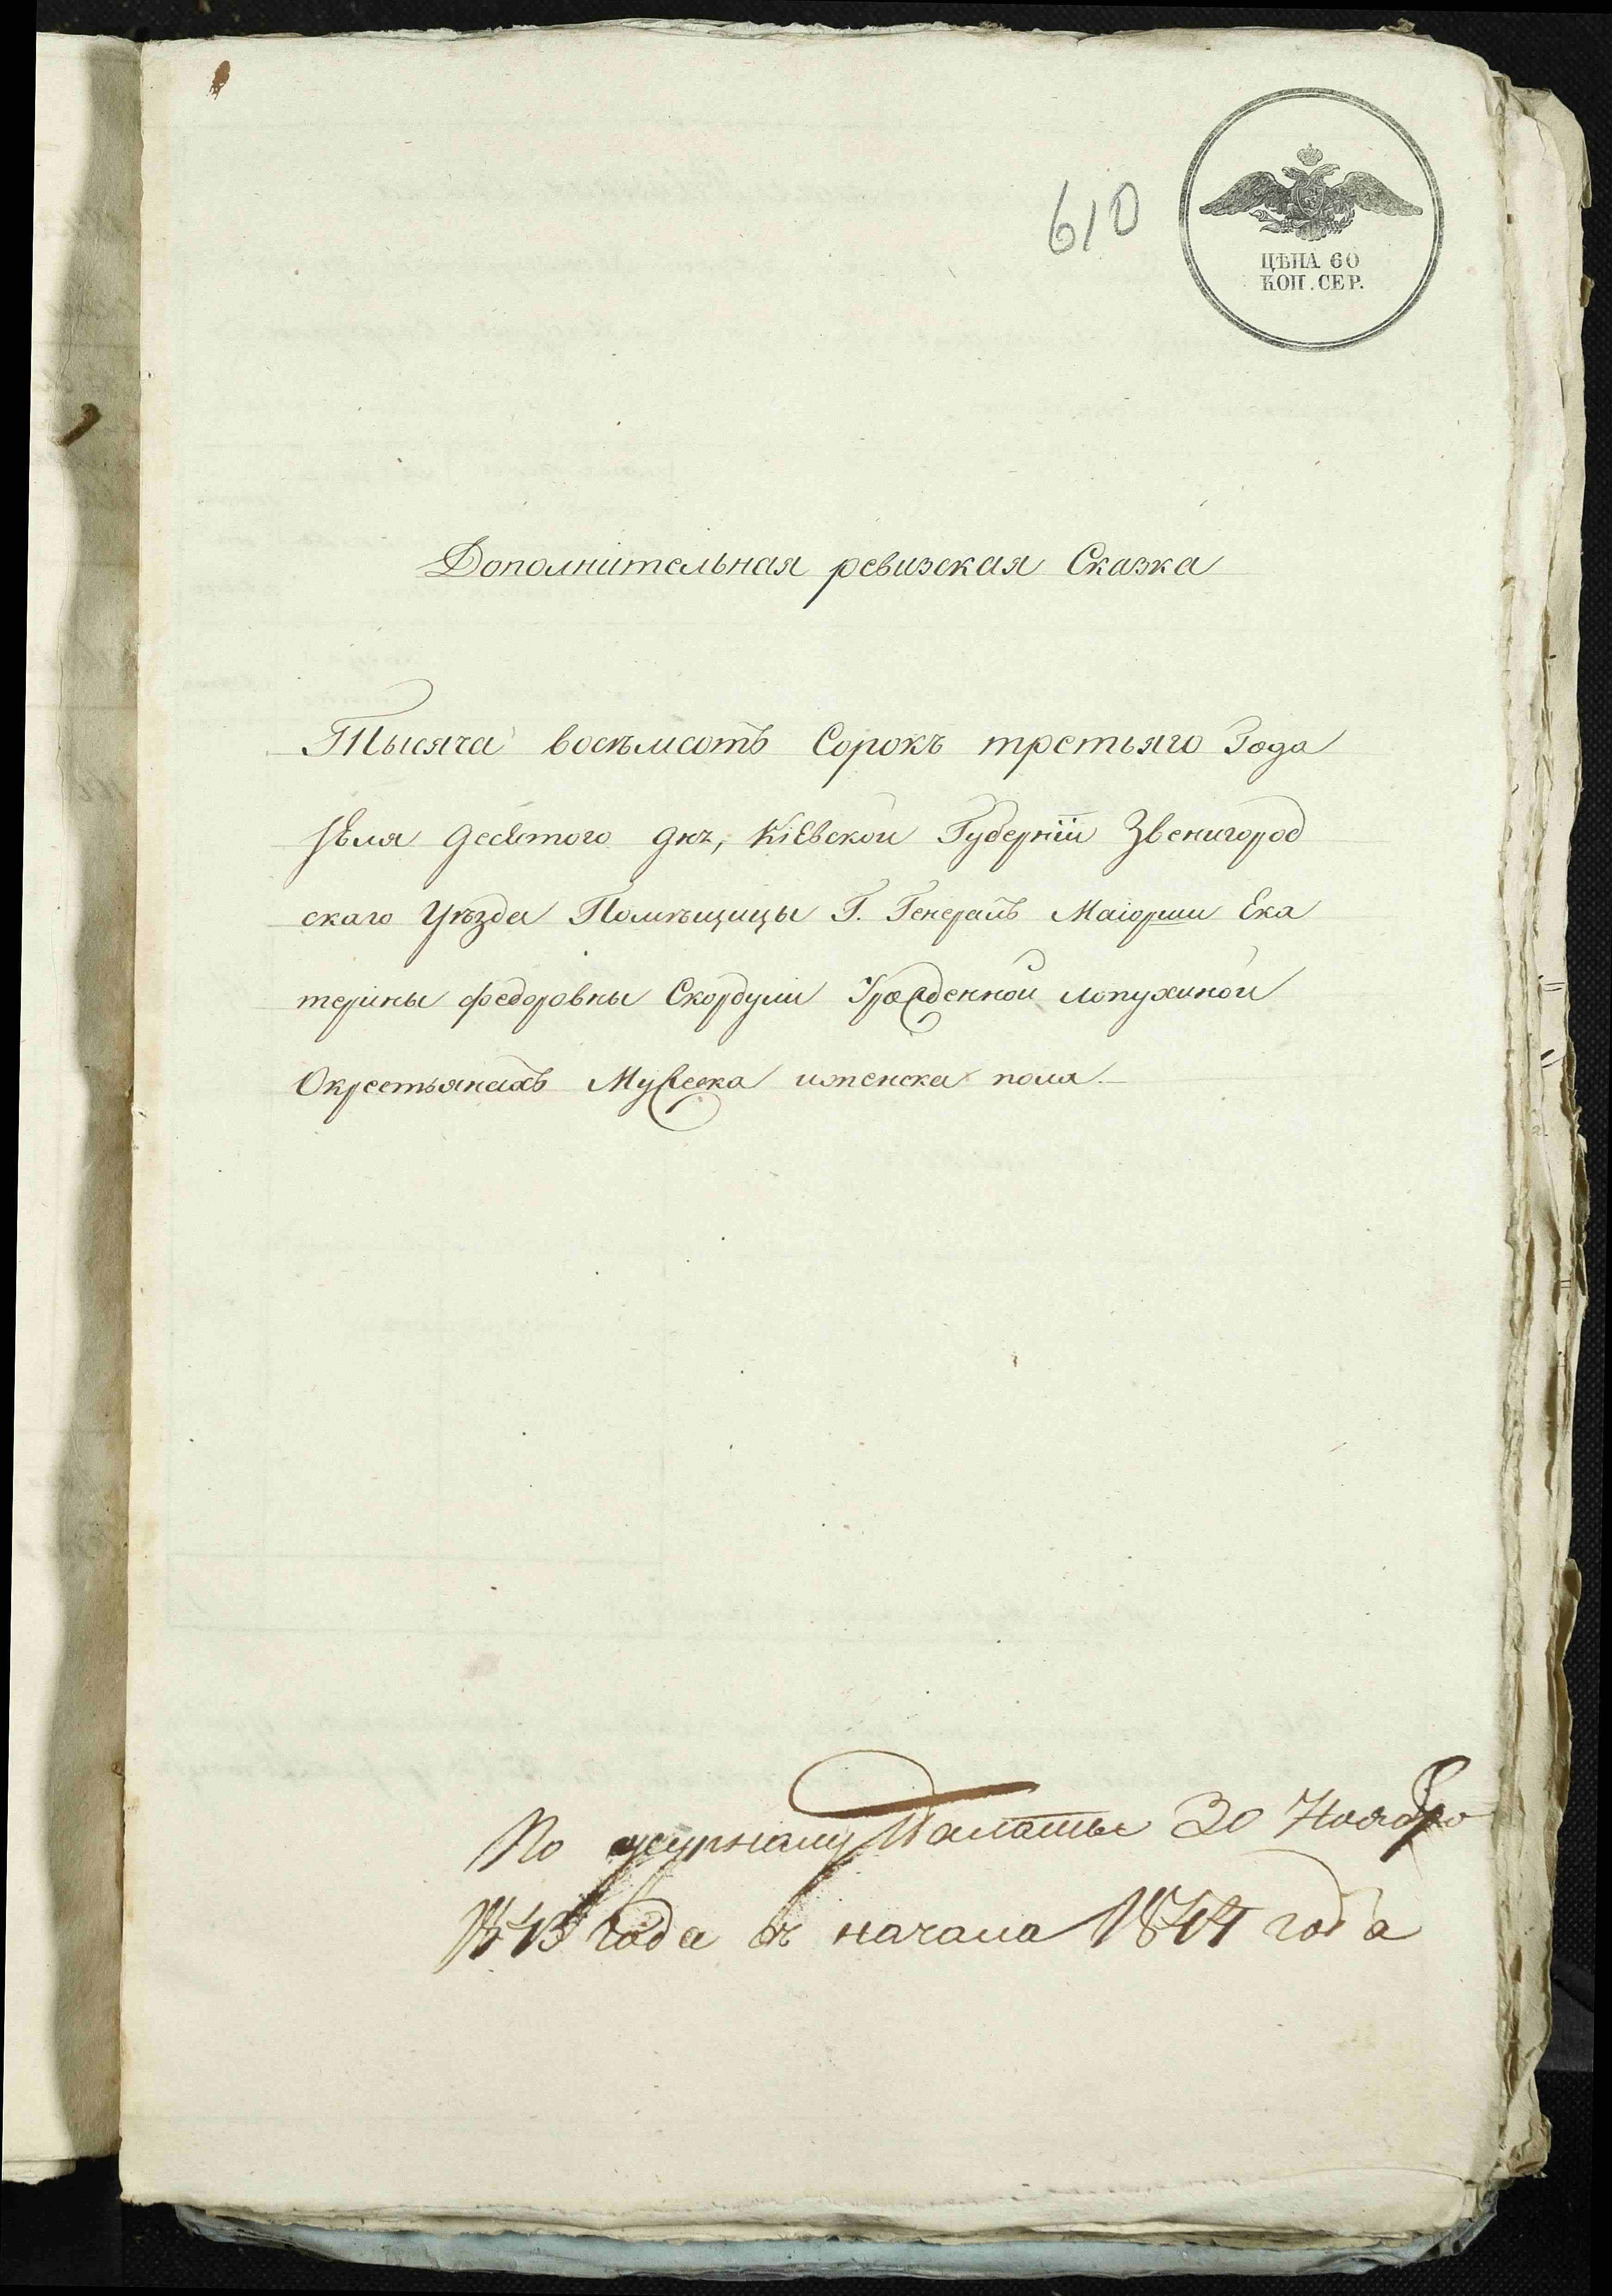 610
ЦѢНА 60
КОП. СЕР.
Дополнительная ревизская Сказка
Тысяча восѣмсотъ Сорокъ третьяго Года
Іюля десятого дня, Кіевской Губерніи Звенигород
скаго Уѣзда Помѣщицы Г. Генералъ Маіорши Ека
терины Федоровны Скордули Урожденной Лопухиной
О крестьянахъ Мужеска и женска пола.
По журналу Палаты 30 Ноября
1843 года съ начала 1844 года